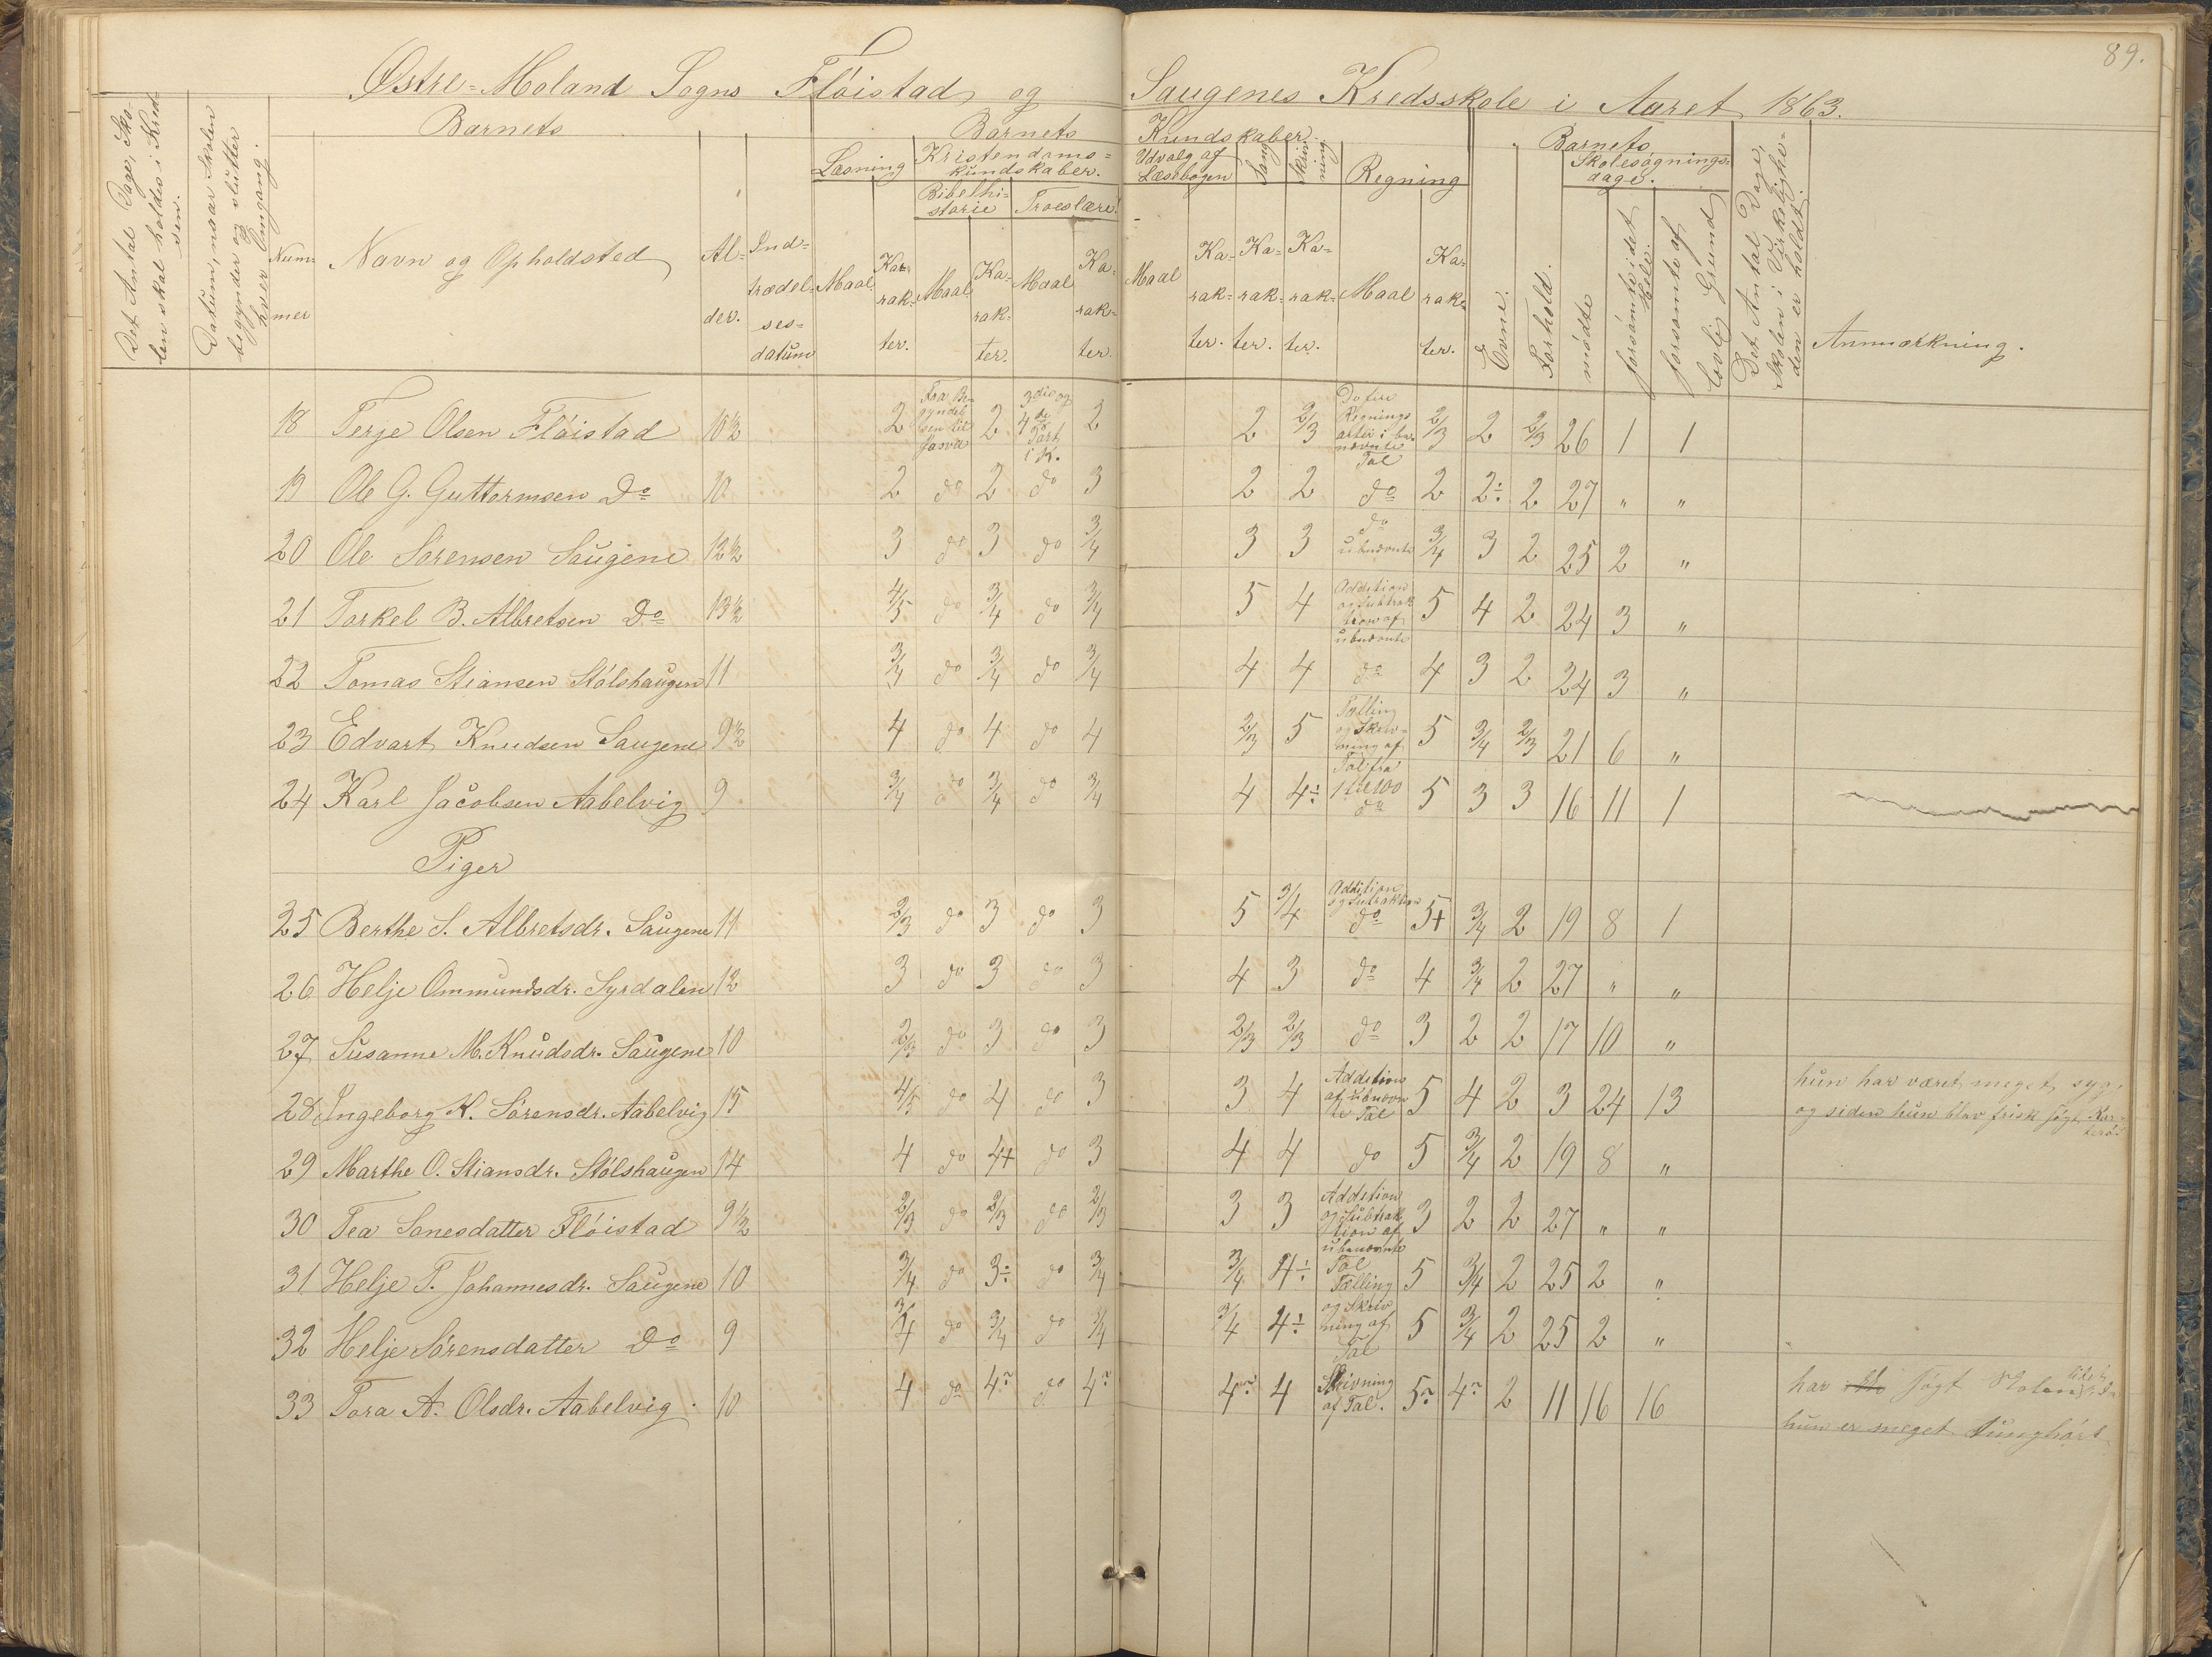 89.
Østre-Moland Sogns Fløistad og Saugenes Kredsskole i Aaret 1863.
Det Antal Dage, Sko-
len skal holdes i Kred-
sen.
Datum, naar Skolen
begynder og slutter
hver Omgang.
Barnets
Num-
mer
Navn og Opholdsted
Al-
der.
Ind-
trædel-
ses-
datum
Barnets Kundskaber.
Læsning
Maal
Ka-
rak-
ter.
Kristendoms-
kundskaber.
Bibelhi-
storie
Maal
Ka-
rak-
ter.
Troeslære.
Maal
Ka-
rak-
ter.
Udvalg af
Læsebogen
Maal
Ka-
rak-
ter.
Sang
Ka-
rak-
ter.
Skriv-
ning
Ka-
rak-
ter.
Regning
Maal
Ka-
rak-
ter.
Barnets
Evne.
Forhold.
Skolesøgnings-
dage.
mødte
forsømte i det
Hele.
forsømte af
lovlig Grund
Det Antal Dage,
Skolen i Virkelighe-
den er holdt.
Anmærkning.
18 Terje Olsen Fløistad 10½ 2 Fra Be-
gyndel
sen til
Josva 2 3die og
4de
Part
i K. 2 2 2/3 De fire
Regnings
arter i be-
nævnte
Tal 2/3 2 2/3 26 1 1
19 Ole G. Guttormsen Do 10 2 do 2 do 3 2 2 do 2 2÷ 2 27 " "
20 Ole Sørensen Saugene 12½ 3 do 3 do 3/4 3 3 do
ubnævnte 3/4 3 2 25 2 "
21 Torkel B. Albretsen Do 13½ 4/5 do 3/4 do 3/4 5 4 Addition
og Subtrak
tion af
ubnævnte 5 4 2 24 3 "
22 Tomas Stiansen Stølshaugen 11 3/4 do 3/4 do 3/4 4 4 do 4 3 2 24 3 "
23 Edvart Knudsen Saugene 9½ 4 do 4 do 4 2/3 5 Tælling
og Skriv-
ning af
Tal fra
1 til 100 5 3/4 2/3 21 6 "
24 Karl Jacobsen Aabelvig 9 3/4 do 3/4 do 3/4 4 4÷ do 5 3 3 16 11 1
Piger
25 Berthe S. Albretsdr. Saugene 11 2/3 do 3 do 3 5 3/4 Addition
og Subtraktion
do 5+ 3/4 2 19 8 1
26 Helje Ommundsdr. Syrdalen 12 3 do 3 do 3 4 3 do 4 3/4 2 27 " "
27 Susanne M. Knudsdr. Saugene 10 2/3 do 3 do 3 2/3 2/3 do 3 2 2 17 10 "
28 Ingeborg K. Sørensdr. Aabelvig 15 4/5 do 4 do 3 3 4 Addition
af ubnævn
te Tal 5 4 2 3 24 13 hun har været meget syg,
og siden hun blev frisk søgt
29 Marthe O. Stiansdr. Stølshaugen 14 4 do 4+ do 3 4 4 do 5 3/4 2 19 8 "
30 Tea Sanesdatter Fløistad 9½ 2/3 do 2/3 do 2/3 3 3 Addition
og Subtrak
tion af
ubenævnte
Tal 3 2 2 27 " "
31 Helje T. Johannesdr. Saugene 10 3/4 do 3÷ do 3/4 3/4 4÷ Tælling
og Skriv
ning af
Tal 5 3/4 2 25 2 "
32 Helje Sørensdatter Do 9 3/4 do 3/4 do 3/4 3/4 4÷ 5 3/4 2 25 2 "
33 Tora A. Olsdr. Aabelvig 10 4 do 4÷ do 4÷ 4÷ 4 Skrivning
af Tal. 5÷ 4÷ 2 11 16 16 har søgt Skolen
hun er meget tunghørt